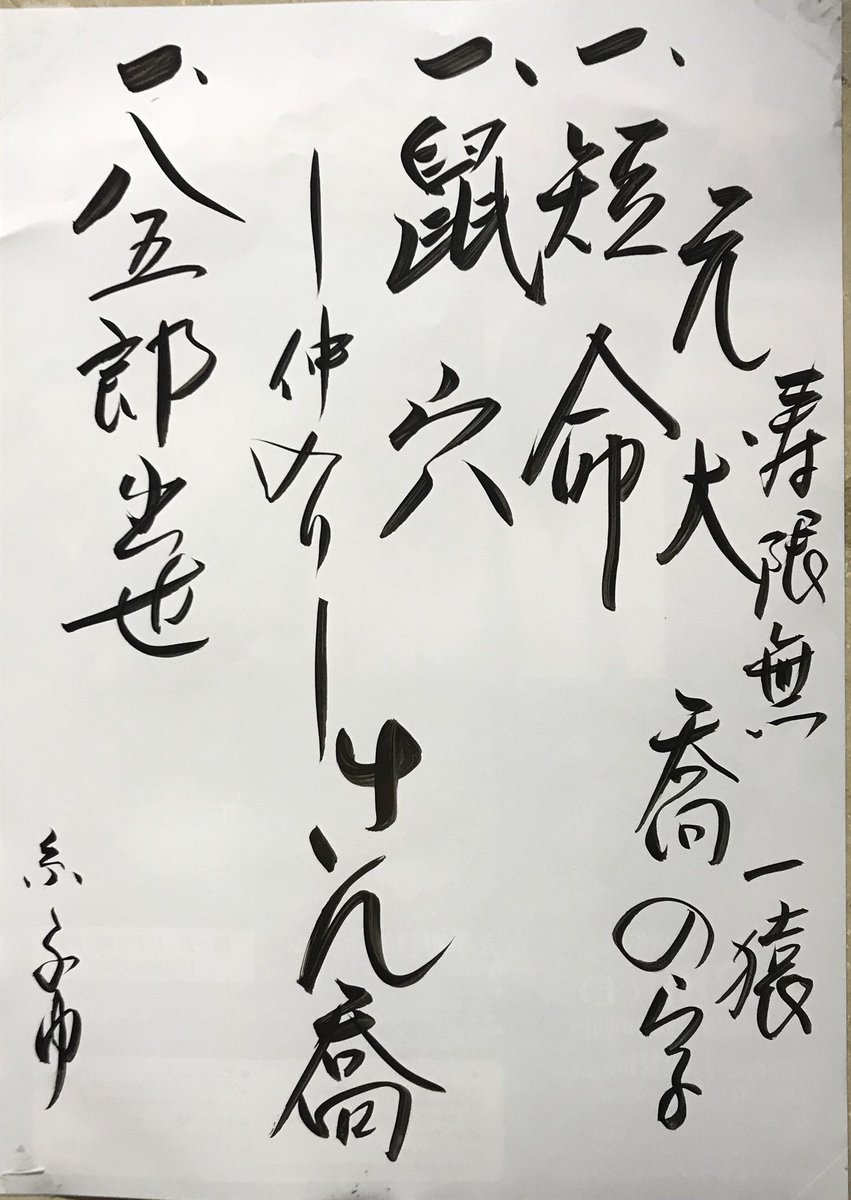 寿限無 一猿
元犬 喬の字
一、短命
一、鼠穴
ー仲入りー さん喬
一、八五郎出世